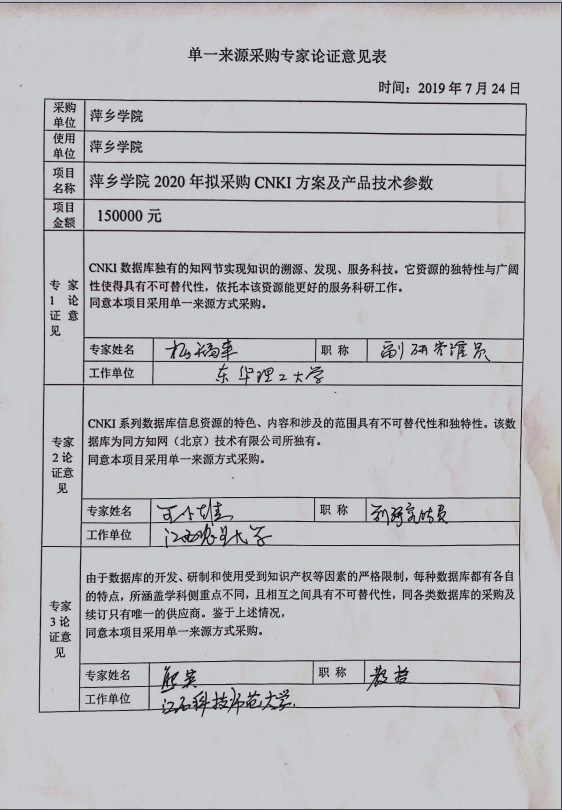 单一来源采购专家论证意见表
时间：2019 年 7 月 24 日
采购单位 萍乡学院
使用单位 萍乡学院
项目名称 萍乡学院 2020 年拟采购 CNKI 方案及产品技术参数
项目金额 150000 元
专家1论证意见
CNKI 数据库独有的知网节实现知识的溯源、发现、服务科技。它资源的独特性与广阔
性使得具有不可替代性，依托本该资源能更好的服务科研工作。
同意本项目采用单一来源方式采购。
专家姓名 职 称 副研究馆员
工作单位 东华理工大学
专家2论证意见
CNKI 系列数据库信息资源的特色、内容和涉及的范围具有不可替代性和独特性。该数
据库为同方知网（北京）技术有限公司所独有。
同意本项目采用单一来源方式采购。
专家姓名 职 称 副研究馆员
工作单位 江西农业大学
专家3论证意见
由于数据库的开发、研制和使用受到知识产权等因素的严格限制，每种数据库都有各自
的特点，所涵盖学科侧重点不同，且相互之间具有不可替代性，同各类数据库的采购及
续订只有唯一的供应商。鉴于上述情况，
同意本项目采用单一来源方式采购。
专家姓名 职 称 教授
工作单位 江西科技师范大学